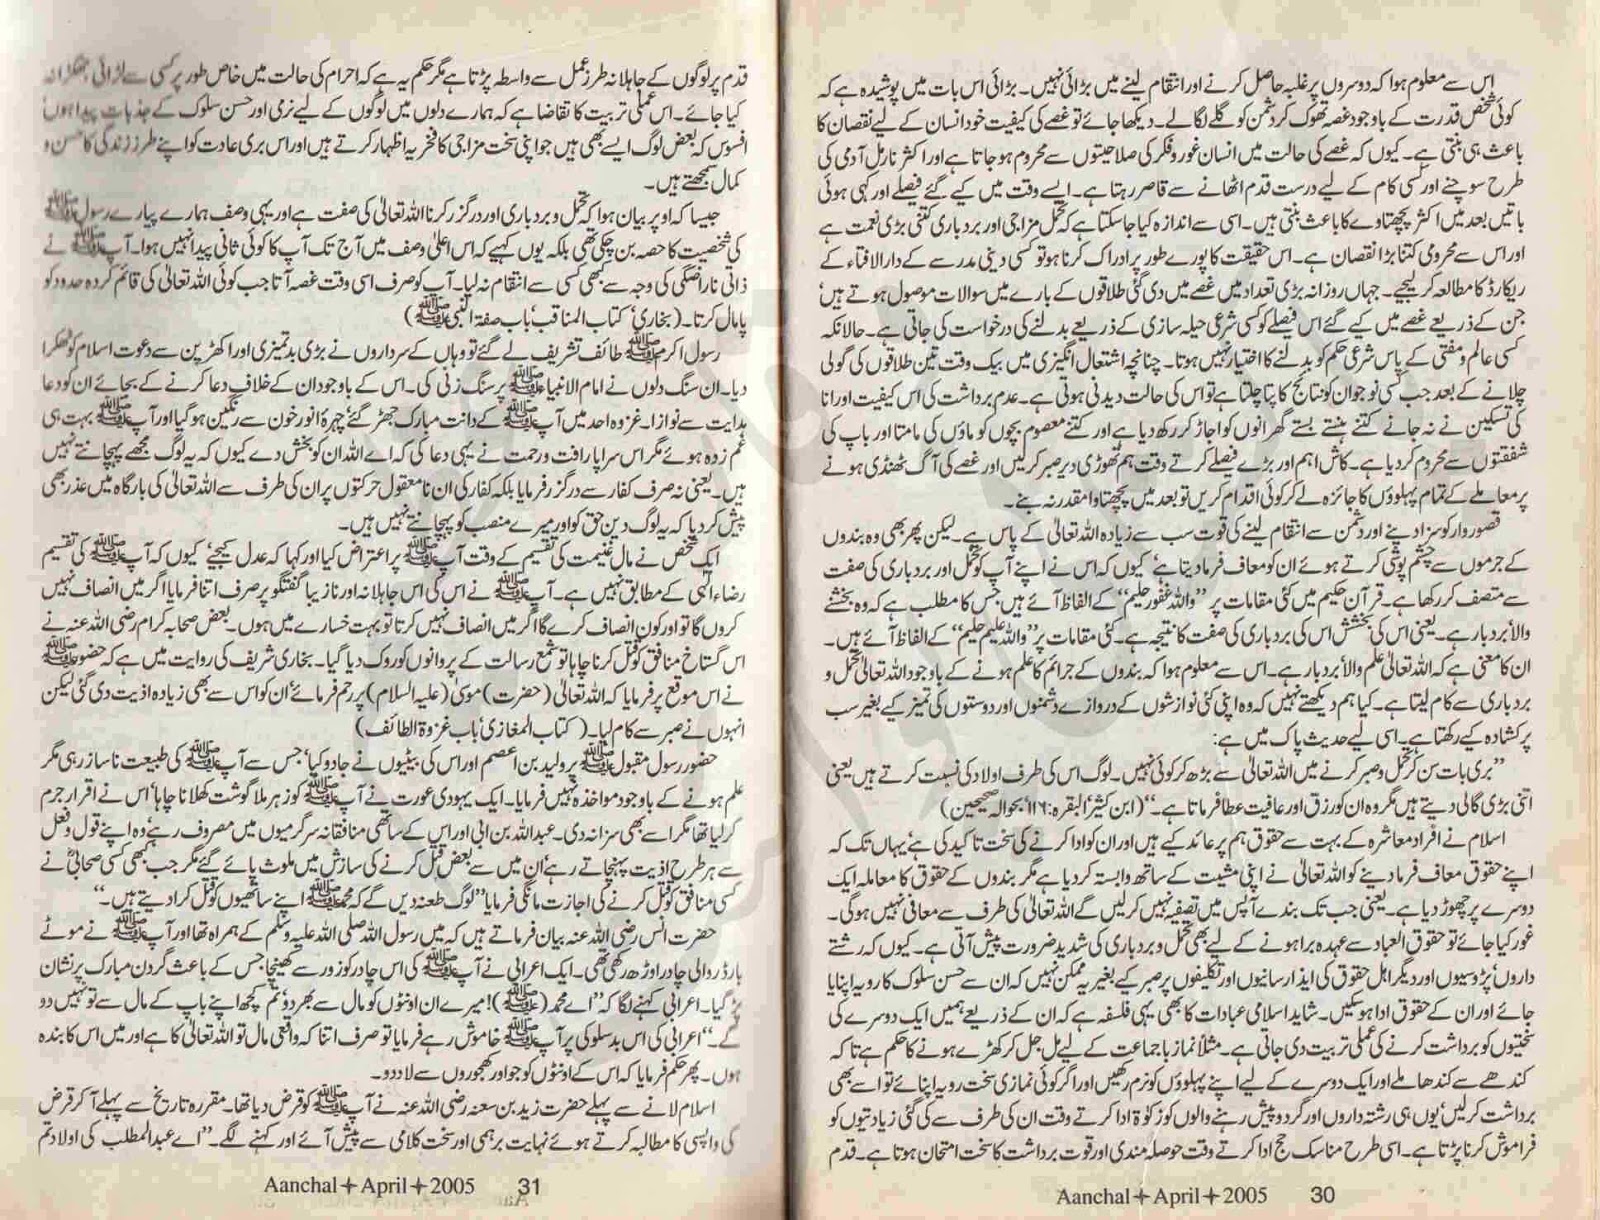 اس سے معلوم ہوا کہ دوسروں پر غلبہ حاصل کرنے اور انتقام لینے میں بڑائی نہیں۔ بڑائی اس بات میں پوشیدہ ہے کہ
کوئی شخص قدرت کے باوجود غصہ تھوک کر دشمن کو گلے لگالے۔ دیکھا جائے تو غصے کی کیفیت خود انسان کے لیے نقصان کا
باعث ہی بنتی ہے۔ کیوں کہ غصے کی حالت میں انسان غور و فکر کی صلاحیتوں سے محروم ہوجاتا ہے اور اکثر نارمل آدمی کی
طرح سوچنے اور کسی کام کے لیے درست قدم اٹھانے سے قاصر رہتا ہے۔ ایسے وقت میں کیے گئے فیصلے اور کہی ہوئی
باتیں بعد میں اکثر پچھتاوے کا باعث بنتی ہیں۔ اسی سے اندازہ کیا جاسکتا ہے کہ تحمل مزاجی اور بردباری کتنی بڑی نعمت ہے
اور اس سے محرومی کتنا بڑا نقصان ہے۔ اس حقیقت کا پورے طور پر ادراک کرنا ہو تو کسی دینی مدرسے کے دارالافتاء کے
ریکارڈ کا مطالعہ کرلیجیے۔ جہاں روزانہ بڑی تعداد میں غصے میں دی گئی طلاقوں کے بارے میں سوالات موصول ہوتے ہیں‘
جن کے ذریعے غصے میں کیے گئے اس فیصلے کو کسی شرعی حیلہ سازی کے ذریعے بدلنے کی درخواست کی جاتی ہے۔ حالانکہ
کسی عالم و مفتی کے پاس شرعی حکم کو بدلنے کا اختیار نہیں ہوتا۔ چنانچہ اشتعال انگیزی میں بیک وقت تین طلاقوں کی گولی
چلانے کے بعد جب کسی نوجوان کو نتائج کا پتا چلتا ہے تو اس کی حالت دیدنی ہوتی ہے۔ عدم برداشت کی اس کیفیت اور انا
کی تسکین نے نہ جانے کتنے ہنستے بستے گھرانوں کو اجاڑ کر رکھ دیا ہے اور کتنے معصوم بچوں کو ماؤں کی مامتا اور باپ کی
شفقتوں سے محروم کردیا ہے۔ کاش اہم اور بڑے فیصلے کرتے وقت ہم تھوڑی دیر صبر کرلیں اور غصے کی آگ ٹھنڈی ہونے
پر معاملے کے تمام پہلوؤں کا جائزہ لے کر کوئی اقدام کریں تو بعد میں پچھتاوا مقدر نہ بنے۔
قصور وار کو سزا دینے اور دشمن سے انتقام لینے کی قوت سب سے زیادہ اللہ تعالیٰ کے پاس ہے۔ لیکن پھر بھی وہ بندوں
کے جرموں سے چشم پوشی کرتے ہوئے ان کو معاف فرما دیتا ہے‘ کیوں کہ اس نے اپنے آپ کو تحمل اور بردباری کی صفت
سے متصف کر رکھا ہے۔ قرآن حکیم میں کئی مقامات پر ”واللہ غفور حلیم“ کے الفاظ آئے ہیں‘ جس کا مطلب ہے کہ وہ بخشنے
والا بردبار ہے۔ یعنی اس کی بخشش اس کی بردباری کی صفت کا نتیجہ ہے۔ کئی مقامات پر ”واللہ علیم حلیم“ کے الفاظ آئے ہیں۔
ان کا معنی ہے کہ اللہ تعالیٰ علم والا بردبار ہے۔ اس سے معلوم ہوا کہ بندوں کے جرائم کا علم ہونے کے باوجود اللہ تعالیٰ تحمل و
بردباری سے کام لیتا ہے۔ کیا ہم دیکھتے نہیں کہ وہ اپنی کئی نوازشوں کے دروازے دشمنوں اور دوستوں کی تمیز کیے بغیر سب
پر کشادہ کیے رکھتا ہے۔ اسی لیے حدیث پاک میں ہے:
”بری بات سن کر تحمل و صبر کرنے میں اللہ تعالیٰ سے بڑھ کر کوئی نہیں۔ لوگ اس کی طرف اولاد کی نسبت کرتے ہیں یعنی
اتنی بڑی گالی دیتے ہیں مگر وہ ان کو رزق اور عافیت عطا فرماتا ہے۔“ (ابن کثیر‘ البقرہ: ۱۱۶‘ بحوالہ صحیحین)
اسلام نے افراد معاشرہ کے بہت سے حقوق ہم پر عائد کیے ہیں اور ان کو ادا کرنے کی سخت تاکید کی ہے‘ یہاں تک کہ
اپنے حقوق معاف فرما دینے کو اللہ تعالیٰ نے اپنی مشیت کے ساتھ وابستہ کردیا ہے مگر بندوں کے حقوق کا معاملہ ایک
دوسرے پر چھوڑ دیا ہے۔ یعنی جب تک بندے آپس میں تصفیہ نہیں کرلیں گے اللہ تعالیٰ کی طرف سے معافی نہیں ہوگی۔
غور کیا جائے تو حقوق العباد سے عہدہ برا ہونے کے لیے بھی تحمل و بردباری کی شدید ضرورت پیش آتی ہے۔ کیوں کہ رشتے
داروں‘ پڑوسیوں اور دیگر اہل حقوق کی ایذا رسانیوں اور تکلیفوں پر صبر کیے بغیر یہ ممکن نہیں کہ ان سے حسن سلوک کا رویہ اپنایا
جائے اور ان کے حقوق ادا ہوسکیں۔ شاید اسلامی عبادات کا بھی یہی فلسفہ ہے کہ ان کے ذریعے ہمیں ایک دوسرے کی
سختیوں کو برداشت کرنے کی عملی تربیت دی جاتی ہے۔ مثلاً نماز باجماعت کے لیے مل جل کر کھڑے ہونے کا حکم ہے تاکہ
کندھے سے کندھا ملے اور ایک دوسرے کے لیے اپنے پہلوؤں کو نرم رکھیں اور اگر کوئی نمازی سخت رویہ اپنائے تو اسے بھی
برداشت کرلیں‘ یوں ہی رشتہ داروں اور گردوپیش رہنے والوں کو زکوٰۃ ادا کرتے وقت ان کی طرف سے کی گئی زیادتیوں کو
فراموش کرنا پڑتا ہے۔ اسی طرح مناسک حج ادا کرتے وقت حوصلہ مندی اور قوت برداشت کا سخت امتحان ہوتا ہے۔ قدم
Aanchal✦April✦2005 30
قدم پر لوگوں کے جاہلانہ طرز عمل سے واسطہ پڑتا ہے مگر حکم یہ ہے کہ احرام کی حالت میں خاص طور پر کسی سے لڑائی جھگڑا نہ
کیا جائے۔ اس عملی تربیت کا تقاضا ہے کہ ہمارے دلوں میں لوگوں کے لیے نرمی اور حسن سلوک کے جذبات پیدا ہوں‘
افسوس کہ بعض لوگ ایسے بھی ہیں جو اپنی سخت مزاجی کا فخریہ اظہار کرتے ہیں اور اس بری عادت کو اپنے طرز زندگی کا حسن و
کمال سمجھتے ہیں۔
جیسا کہ اوپر بیان ہوا کہ تحمل و بردباری اور درگزر کرنا اللہ تعالیٰ کی صفت ہے اور یہی وصف ہمارے پیارے رسول ﷺ
کی شخصیت کا حصہ بن چکی تھی بلکہ یوں کہیے کہ اس اعلیٰ وصف میں آج تک آپ کا کوئی ثانی پیدا نہیں ہوا۔ آپ ﷺ نے
ذاتی ناراضگی کی وجہ سے کبھی کسی سے انتقام نہ لیا۔ آپ کو صرف اسی وقت غصہ آتا جب کوئی اللہ تعالیٰ کی قائم کردہ حدود کو
پامال کرتا۔ (بخاری‘ کتاب المناقب‘ باب صفۃ النبی ﷺ)
رسول اکرم ﷺ طائف تشریف لے گئے تو وہاں کے سرداروں نے بڑی بدتمیزی اور اکھڑپن سے دعوت اسلام کو ٹھکرا
دیا۔ ان سنگ دلوں نے امام الانبیاء ﷺ پر سنگ زنی کی۔ اس کے باوجود ان کے خلاف دعا کرنے کے بجائے ان کو دعا
ہدایت سے نوازا۔ غزوہ احد میں آپ ﷺ کے دانت مبارک جھڑ گئے‘ چہرہ انور خون سے رنگین ہوگیا اور آپ ﷺ بہت ہی
غم زدہ ہوئے مگر اس سراپا رافت و رحمت نے یہی دعا کی کہ اے اللہ ان کو بخش دے کیوں کہ یہ لوگ مجھے پہچانتے نہیں
ہیں۔ یعنی نہ صرف کفار سے درگزر فرمایا بلکہ کفار کی ان نامعقول حرکتوں پر ان کی طرف سے اللہ تعالیٰ کی بارگاہ میں عذر بھی
پیش کردیا کہ یہ لوگ دین حق کو اور میرے منصب کو پہچانتے نہیں ہیں۔
ایک شخص نے مال غنیمت کی تقسیم کے وقت آپ ﷺ پر اعتراض کیا اور کہا کہ عدل کیجیے‘ کیوں کہ آپ ﷺ کی تقسیم
رضاء الٰہی کے مطابق نہیں ہے۔ آپ ﷺ نے اس کی اس جاہلانہ اور نازیبا گفتگو پر صرف اتنا فرمایا اگر میں انصاف نہیں
کروں گا تو اور کون انصاف کرے گا‘ اگر میں انصاف نہیں کرتا تو بہت خسارے میں ہوں۔ بعض صحابہ کرام رضی اللہ عنہ نے
اس گستاخ منافق کو قتل کرنا چاہا تو شمع رسالت کے پروانوں کو روک دیا گیا۔ بخاری شریف کی روایت میں ہے کہ حضور ﷺ
نے اس موقع پر فرمایا کہ اللہ تعالیٰ (حضرت) موسیٰ (علیہ السلام) پر رحم فرمائے‘ ان کو اس سے بھی زیادہ اذیت دی گئی لیکن
انہوں نے صبر سے کام لیا۔ (کتاب المغازی‘ باب غزوۃ الطائف)
حضور رسول مقبول ﷺ پر ولید بن اعصم اور اس کی بیٹیوں نے جادو کیا‘ جس سے آپ ﷺ کی طبیعت ناساز رہی مگر
علم ہونے کے باوجود مواخذہ نہیں فرمایا۔ ایک یہودی عورت نے آپ ﷺ کو زہر ملا گوشت کھلانا چاہا‘ اس نے اقرار جرم
کرلیا تھا مگر اسے بھی سزا نہ دی۔ عبداللہ بن ابی اور اس کے ساتھی منافقانہ سرگرمیوں میں مصروف رہے‘ وہ اپنے قول و فعل
سے ہر طرح اذیت پہنچاتے رہے‘ ان میں سے بعض قتل کرنے کی سازش میں ملوث پائے گئے مگر جب کبھی کسی صحابیؓ نے
کسی منافق کو قتل کرنے کی اجازت مانگی فرمایا ”لوگ طعنہ دیں گے کہ محمد ﷺ اپنے ساتھیوں کو قتل کرا دیتے ہیں۔“
حضرت انس رضی اللہ عنہ بیان فرماتے ہیں کہ میں رسول اللہ صلی اللہ علیہ وسلم کے ہمراہ تھا اور آپ ﷺ نے موٹے
بارڈر والی چادر اوڑھ رکھی تھی۔ ایک اعرابی نے آپ ﷺ کی اس چادر کو زور سے کھینچا‘ جس کے باعث گردن مبارک پر نشان
پڑگیا۔ اعرابی کہنے لگا کہ ”اے محمد (ﷺ)! میرے ان اونٹوں کو مال سے بھر دو‘ تم کچھ اپنے باپ کے مال سے تو نہیں دو
گے۔“ اعرابی کی اس بدسلوکی پر آپ ﷺ خاموش رہے‘ فرمایا تو صرف اتنا کہ واقعی مال تو اللہ تعالیٰ کا ہے اور میں اس کا بندہ
ہوں۔ پھر حکم فرمایا کہ اس کے اونٹوں کو جو اور کھجوروں سے لاد دو۔
اسلام لانے سے پہلے حضرت زید بن سعنہ رضی اللہ عنہ نے آپ ﷺ کو قرض دیا تھا۔ مقررہ تاریخ سے پہلے آکر قرض
کی واپسی کا مطالبہ کرتے ہوئے نہایت برہمی اور سخت کلامی سے پیش آئے اور کہنے لگے۔ ”اے عبدالمطلب کی اولاد تم
Aanchal✦April✦2005 31